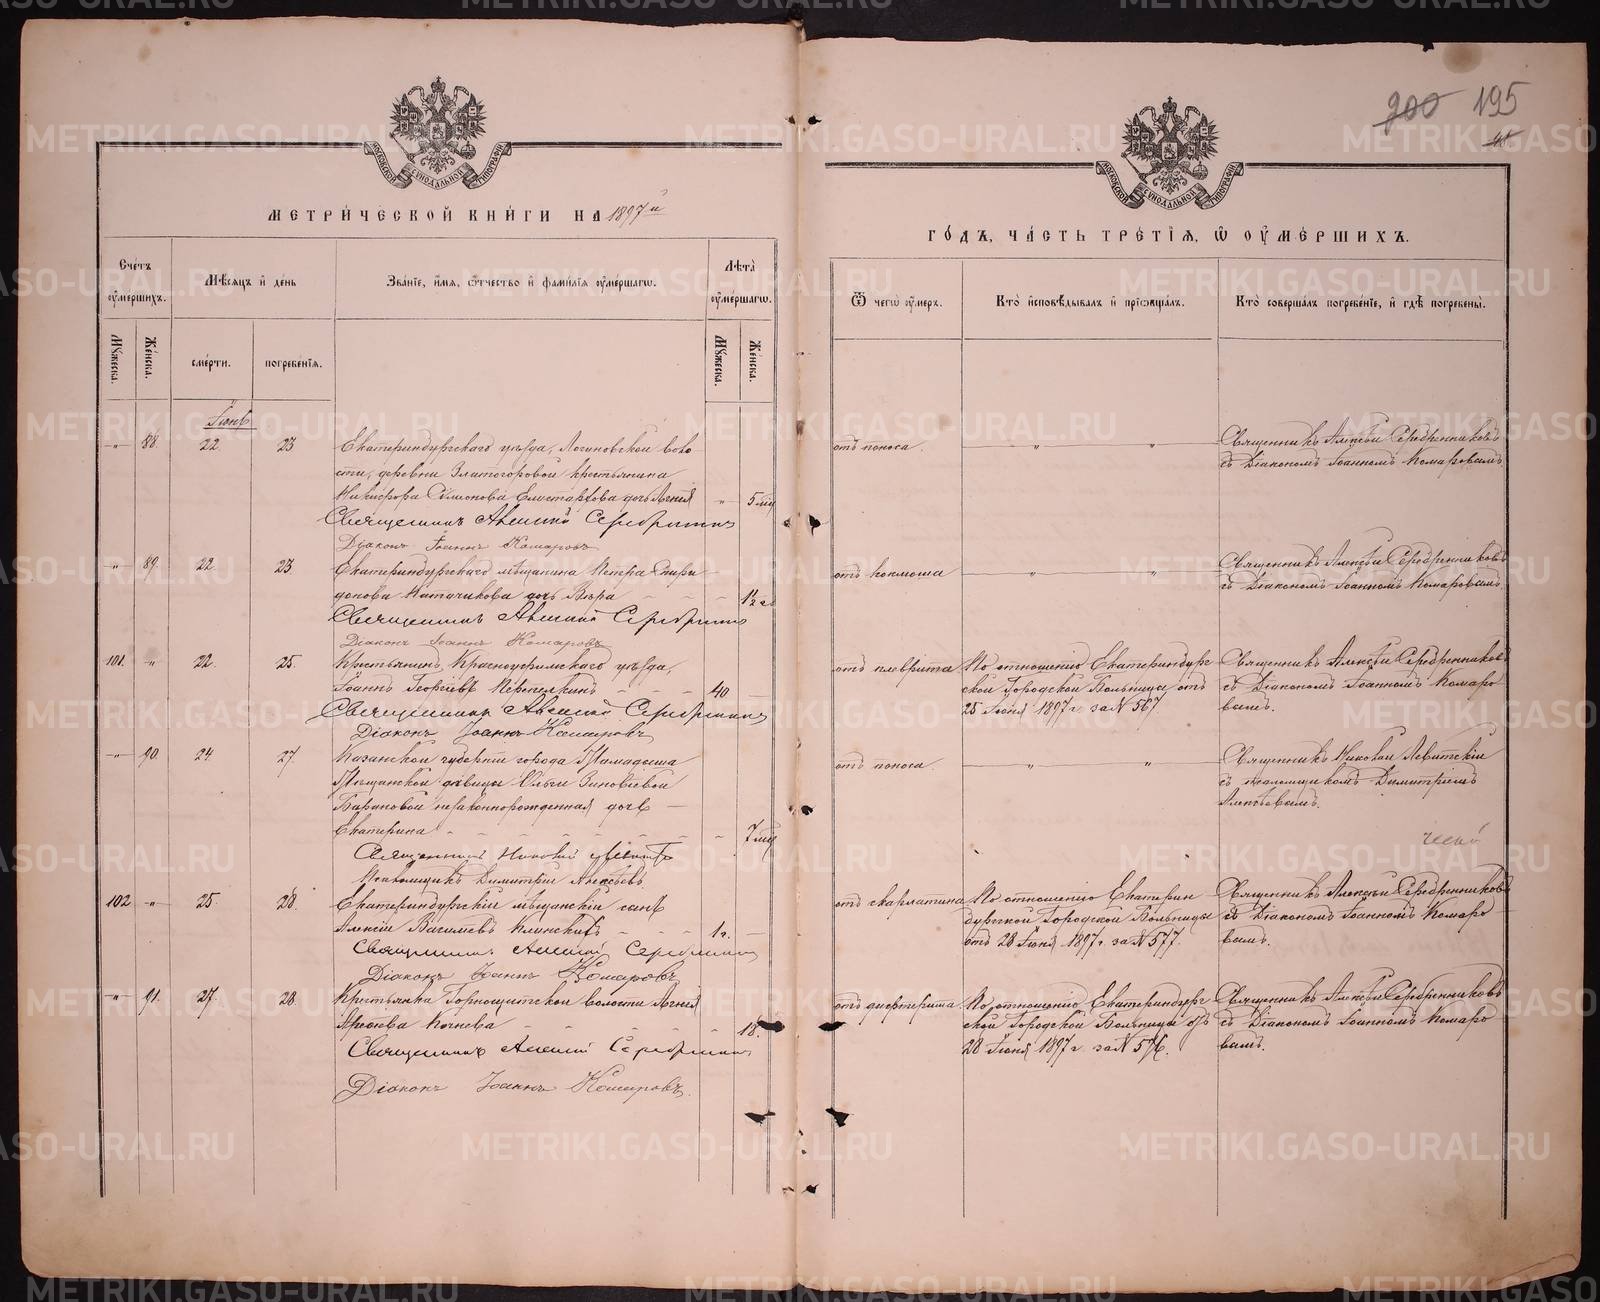 МЕТРИЧЕСКОЙ КНИГИ НА 1897й
Счетъ оумершихъ.
Мужеска.
Женска.
Мѣсяцъ и день
смерти.
погребенія.
Званіе, имя, отчество и фамилія оумершагω.
Лѣта оумершагω.
Мужеска.
Женска.
Іюнь
„ 88. 22. 23
Екатеринбургскаго уѣзда, Логиновской воло
сти, деревни Златогоровой крестьянина
Никифора Симонова дочь Агнія „ 5 мц
Священникъ Алексій Серебренник
Діаконъ Іоаннъ Комаровъ
„ 89. 22. 23
Екатеринбургскаго мѣщанина Петра Спири
донова дочь Вѣра 1½ г.
Священникъ Алексій Серебренник
Діаконъ Іоаннъ Комаровъ
101. „ 22. 25.
Крестьянинъ Красноуфимскаго уѣзда,
Іоаннъ Георгіевъ Перепелкинъ 40
Священникъ Алексій Серебренник
Діаконъ Іоаннъ Комаровъ
„ 90. 24. 27.
Казанской губерніи города Мамадыша
Мѣщанской дѣвицы Ольги Зиновьевой
Барановой незаконнорожденная дочь
Екатерина 7 мц
Священникъ Николай Левитс
Псаломщикъ Димитрій Алексѣевъ.
102 „ 25. 28.
Екатеринбургскій мѣщанскій сынъ
Алексій Васильевъ 1 г.
Священникъ Алексій Серебренник
Діаконъ Іоаннъ Комаровъ
„ 91. 27. 28.
Крестьянка Горнощитской волости Агнія
Кочнева 18.
Священникъ Алексій Серебренник
Діаконъ Іоаннъ Комаровъ.
200 195
ГОДЪ, ЧАСТЬ ТРЕТІЯ, Ѡ ОУМЕРШИХЪ.
Ѿ чегω оумеръ.
Кто исповѣдывалъ и пріωбщалъ.
Кто совершалъ погребеніе, и гдѣ погребены.
отъ поноса. „ „
Священникъ Алексѣй Серебренниковъ
съ Діакономъ Іоанномъ Комаровымъ
отъ коклюша „ „
Священникъ Алексѣй Серебренниковъ
съ Діакономъ Іоанномъ Комаровымъ.
отъ плеврита
По отношенію Екатеринбург
ской Городской Больницы отъ
25 Іюня 1897 г. за № 567
Священникъ Алексѣй Серебренниковъ
съ Діакономъ Іоанномъ Комаро
вымъ.
отъ поноса. „ „
Священникъ Николай Левитскій
съ псаломщикомъ Димитріемъ
Алексѣевымъ.
отъ скарлатина
По отношенію Екатерин
бургской Городской Больницы
отъ 28 Іюня 1897 г. за № 577.
Священникъ Алексѣй Серебренниковъ
съ Діакономъ Іоанномъ Комаро
вымъ.
отъ дифтерита
По отношенію Екатеринбург
ской Городской Больницы отъ
28 Іюня 1897 г. за № 576.
Священникъ Алексѣй Серебренниковъ
съ Діакономъ Іоанномъ Комаро
вымъ.
METRIKI.GASO-URAL.RU